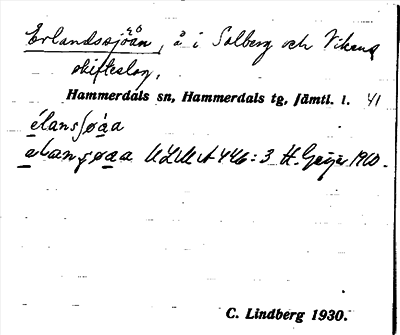 Erlandssjöån, å i Solberg och Vikens
skifteslag,
Hammerdals sn, Hammerdals tg, Jämtl. l. 41
élansʃøa̲a
ULMA 446:3 H. Geijer 1900.
C. Lindberg 1930.